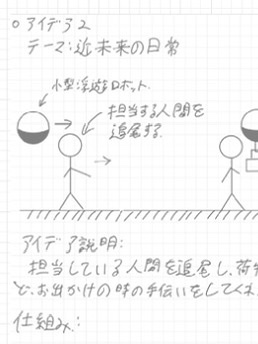 ○アイデア2
テーマ:近未来の日常
小型浮遊ロボット
担当する人間を
追尾する。
アイデア説明:
担当している人間を追尾し、荷
ど、お出かけの時の手伝いをしてく
仕組み: